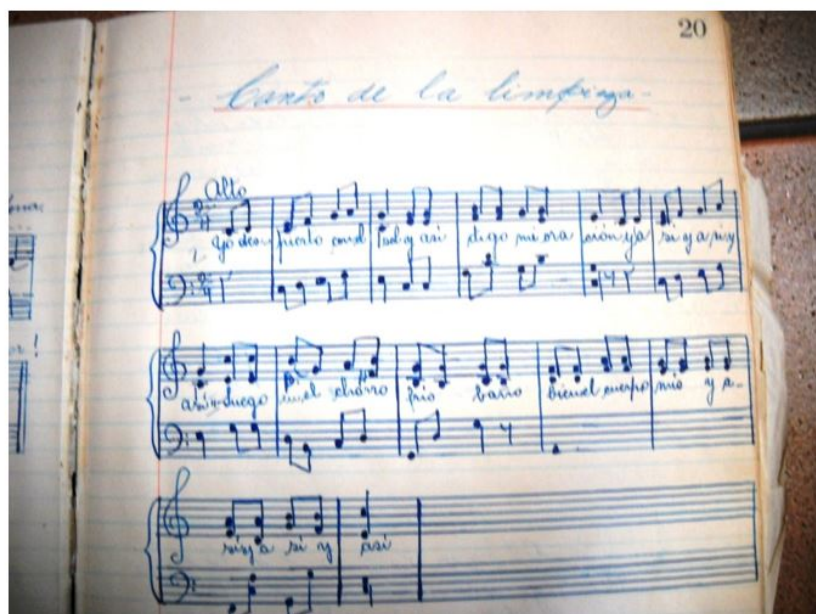 20
- Canto de la limpieza -
Alto
Yo des- pierto con el sol y asi digo mi ora ción y a si y a si y
asi y luego en el chorro frio baño bien el cuerpo mio y a-
si y a si y asi
or!